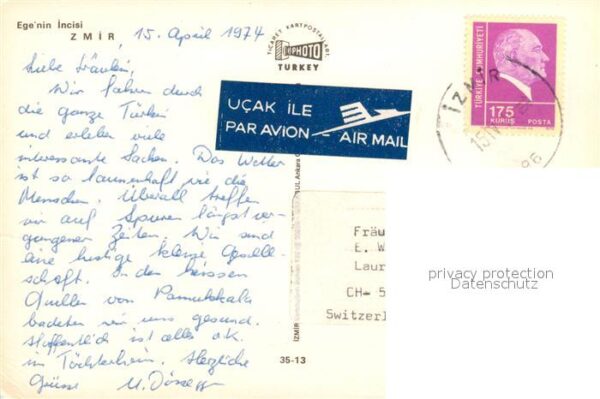 Ege'nin İncisi
ZMİR
15. April 1974
TİCARET KARTPOSTALLARI
PHOTO
TURKEY
Liebe Fräulein,
Wir fahren durch
die ganze Türkei
und erleben viele
interessante Sachen. Das Wetter
ist so launenhaft wie die
Menschen. Überall treffen
wir auf Spuren längst ver-
gangener Zeiten. Wir sind
eine lustige kleine Gesell-
schaft. In den heissen
Quellen von Pamukkale
badeten wir uns gesund.
Hoffentlich ist alles ok.
im Töchterheim. Herzliche
Grüsse
UÇAK İLE
PAR AVION
AIR MAIL
TÜRKİYE CUMHURİYETİ
175
KURUŞ
POSTA
İZMİR
Fräu
E. W
Laur
CH- 5
Switzerl
privacy protection
Datenschutz
İZMİR
35-13